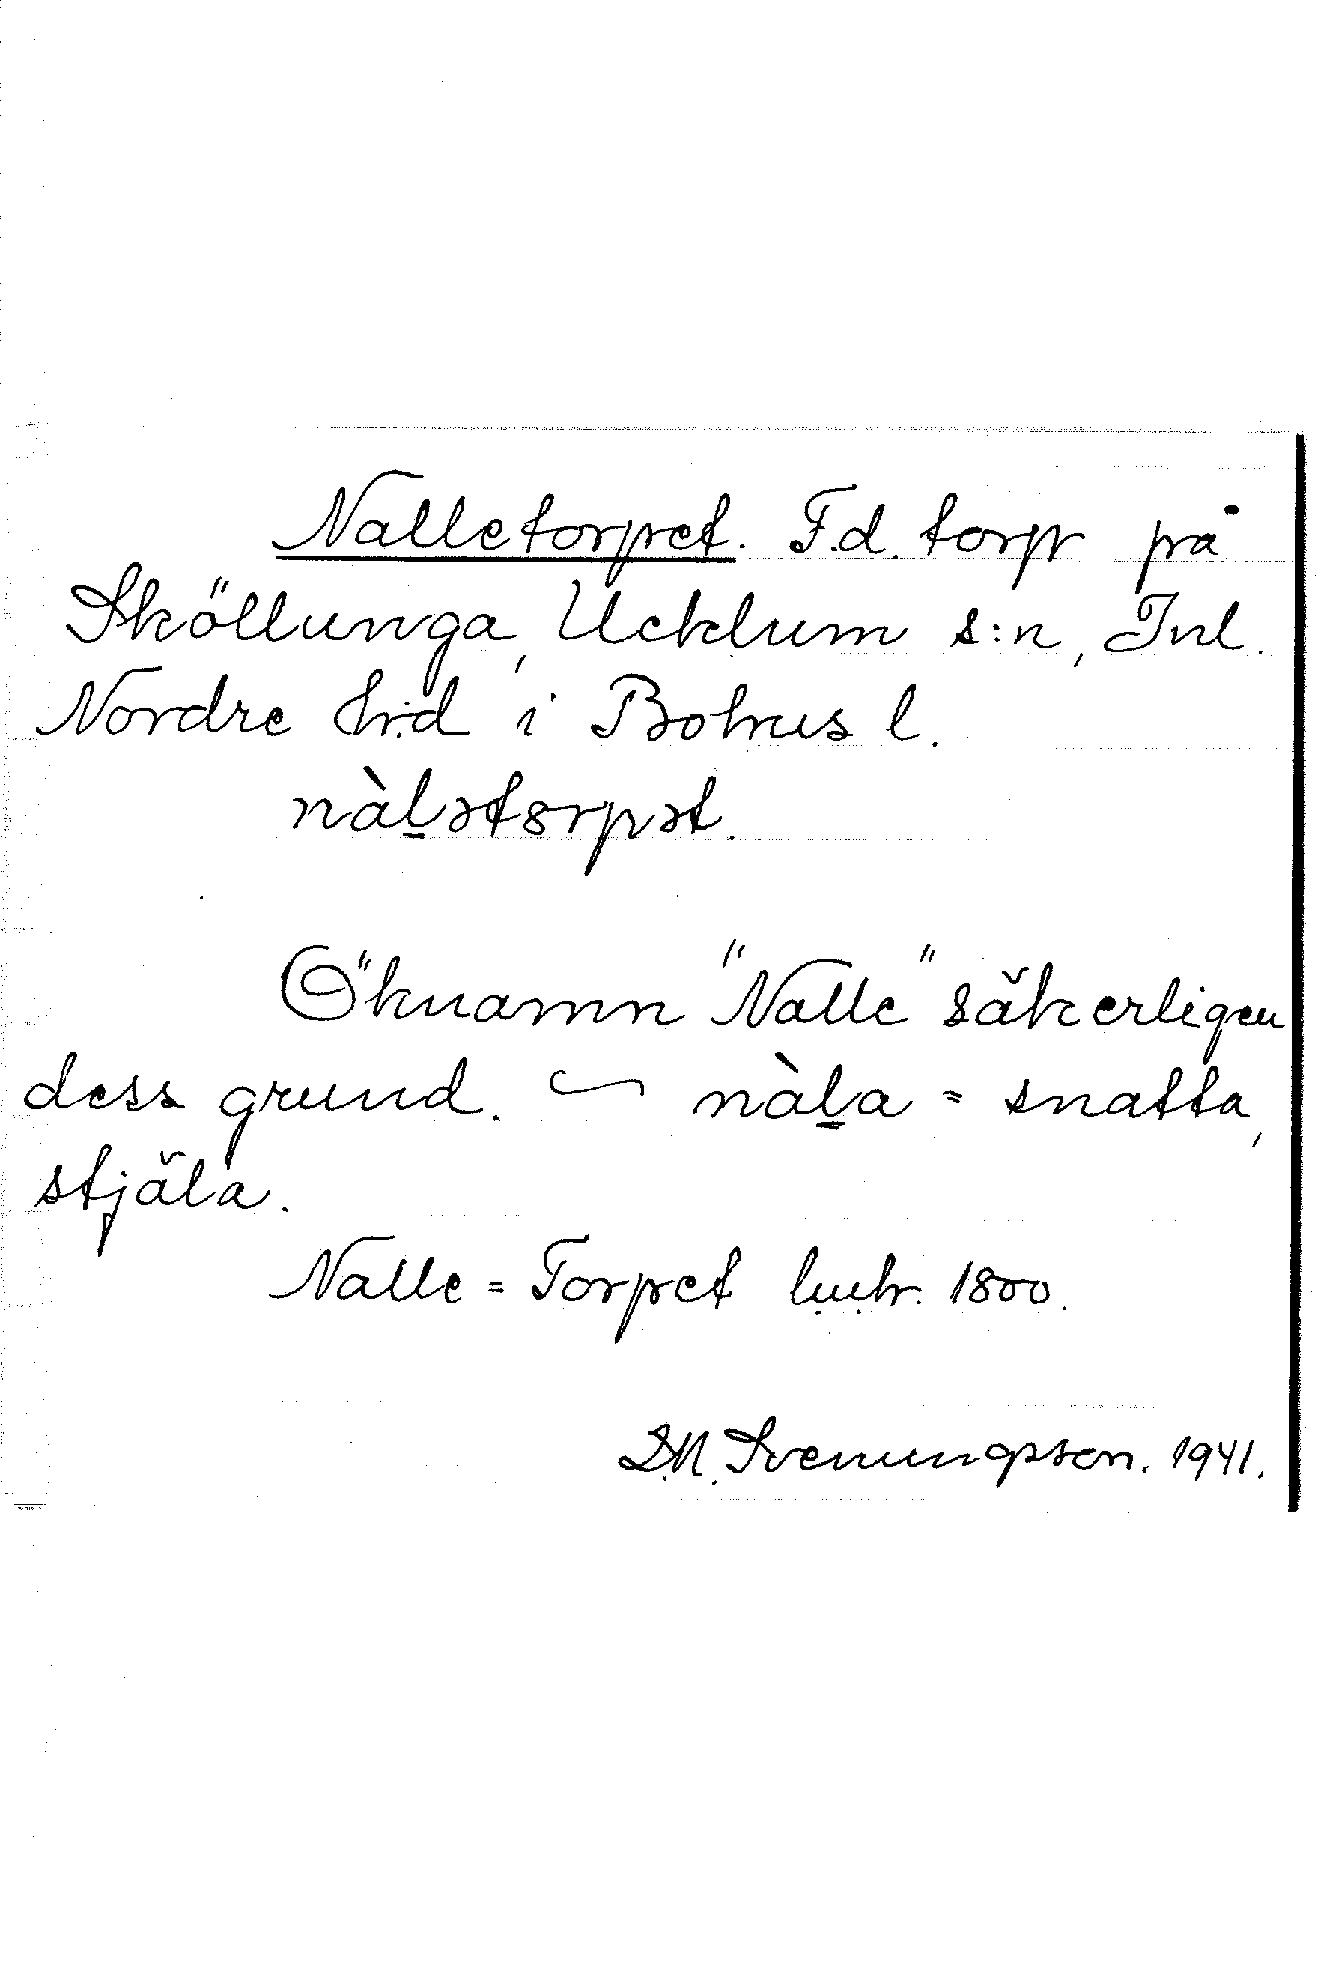 Nalletorpet. F.d. torp på
Sköllunga, Ucklum s:n, Inl.
Nordre hrd i Bohus l.
nàl̲ət8rpət.
Öknamn "Nalle" säkerligen
dess grund. ⁓ nàl̲a = snatta,
stjäla.
Nalle = Torpet 1800.
S.N. Svenungsson. 1941.